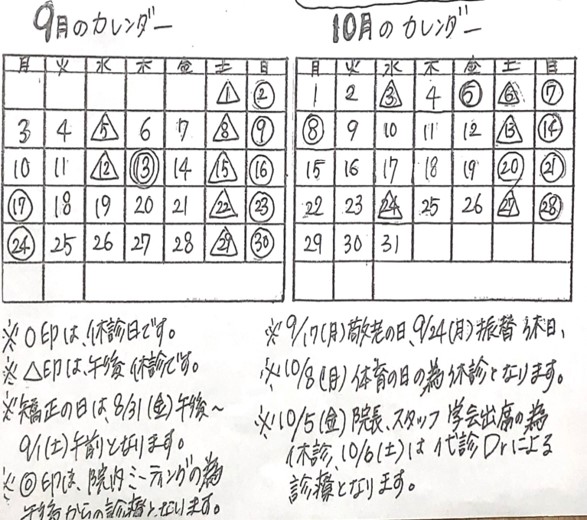 9月のカレンダー
月 火 水 木 金 土 日
1 2
3 4 5 6 7 8 9
10 11 12 13 14 15 16
17 18 19 20 21 22 23
24 25 26 27 28 29 30
※○印は、休診日です。
※△印は、午後休診です。
※矯正の日は、8/31(金)午後～
9/1(土)午前となります。
※◎印は、院内ミーティングの為
午後からの診療となります。
10月のカレンダー
月 火 水 木 金 土 日
1 2 3 4 5 6 7
8 9 10 11 12 13 14
15 16 17 18 19 20 21
22 23 24 25 26 27 28
29 30 31
※9/17(月)敬老の日、9/24(月)振替休日、
※10/8(月)体育の日の為休診となります。
※10/5(金)院長、スタッフ学会出席の為
休診、10/6(土)は代診Drによる
診療となります。